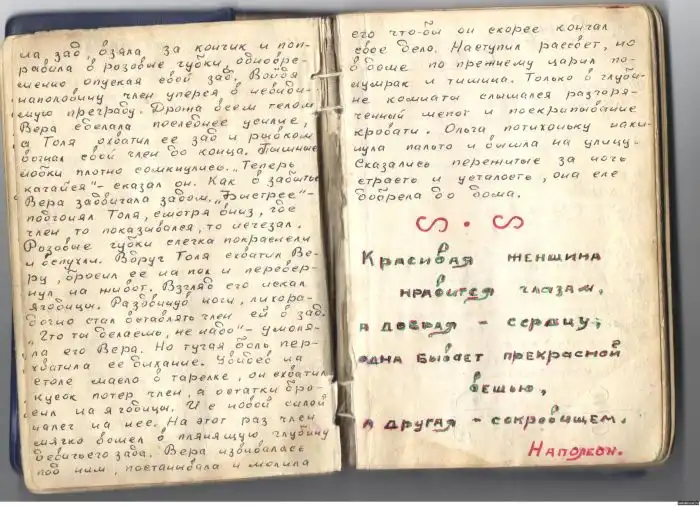 на зад, взяла за кончик и поп-
равила в розовые губки, одновре-
менно опуская свой зад. Войдя
наполовину член уперся в невиди-
мую преграду. Дрожа всем телом
Вера сделала последнее усилие,
а Толя охватил ее зад и рывком
вогнал свой член до конца. Пышные
ляжки плотно сомкнулись. „Теперь
качайся" - сказал он. Как в забытье
Вера задвигала задом. „Быстрее" -
подгонял Толя, смотря вниз, где
член то показывался, то исчезал.
Розовые губки слегка покраснели
и вспухли. Вдруг Толя схватил Ве-
ру, бросил ее на пол и перевер-
нул на живот. Взгляд его искал
ягодицы. Раздвинув ноги, лихора-
дочно стал вставлять член ей в зад.
„Что ты делаешь, не надо" - умоля-
ла его Вера. Но тугая боль пере-
хватила ее дыхание. Увидев на
столе масло в тарелке, он схватил
кусок потер член, а остатки бро-
сил на ягодицы. И с новой силой
налег на нее. На этот раз член
мягко вошел в манящую глубину
девичьего зада. Вера извивалась
под ним, постанывала и молила
его что-бы он скорее кончал
свое дело. Наступил рассвет, но
в доме по прежнему царил по-
лумрак и тишина. Только в глуби-
не комнаты слышался разгоря-
ченный шепот и поскрипывание
кровати. Ольга потихоньку наки-
нула пальто и вышла на улицу.
Сказались пережитые за ночь
страсть и усталость, она еле
добрела до дома.
Красивая женщина
нравится глазам,
а добрая - сердцу;
одна бывает прекрасной
вещью,
а другая - сокровищем.
Наполеон.